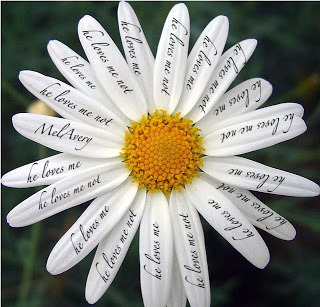 MelAvery
he loves me not
he loves me
he loves me not
he loves me
he loves me not
he loves me
he loves me not
he loves me
he loves me not
he loves me
he loves me
he loves me not
he loves me not
he loves me
he loves me not
he loves me
he loves me not
he loves me